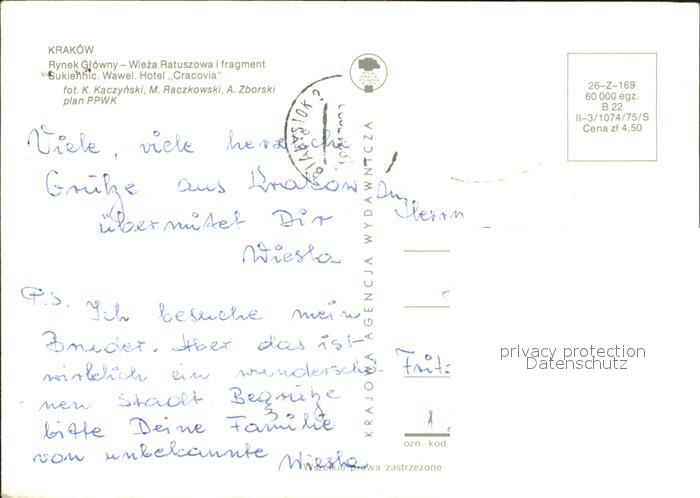 KRAKÓW
Rynek Główny – Wieża Ratuszowa i fragment
Sukiennic. Wawel. Hotel „Cracovia”
fot. K. Kaczyński, M. Raczkowski, A. Zborski
plan PPWK
26–Z–169
60 000 egz.
B 22
II–3/1074/75/S
Cena zł 4,50
BIAŁYSTOK 2
Viele, viele herzliche
Grütze aus Kraków
übermitet Dir
Wiesła
P.S. Ich besuche mein
Bruder. Aber das ist
wirklich ein wundersche-
nen Stadt. Begrütze
bitte Deine Familie
von unbekannte Wiesła
KRAJOWA AGENCJA WYDAWNICZA
An
Herrn
Fritz
1
ozn kod.
Wszelkie prawa zastrzeżone
privacy protection
Datenschutz